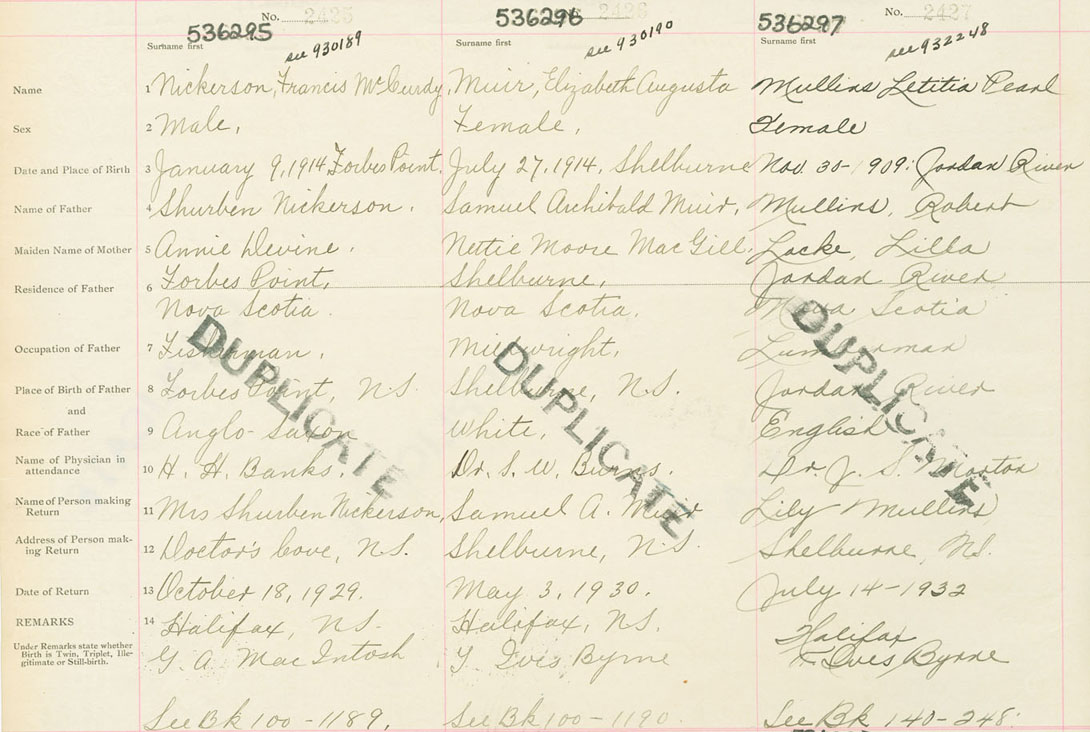 No. 2425
536295
see 930189
Surname first
536296
2426
see 930190
Surname first
536297
No. 2427
see 932248
Surname first
Name 1 Nickerson, Francis McCurdy, Muir, Elizabeth Augusta Mullins Letitia Pearl
Sex 2 Male, Female, Female
Date and Place of Birth 3 January 9, 1914 Forbes Point, July 27, 1914, Shelburne Nov. 30-1909: Jordan River
Name of Father 4 Shurben Nickerson. Samuel Archibald Muir, Mullins, Robert
Maiden Name of Mother 5 Annie Devine. Nettie Moore MacGill, Locke, Lilla
Residence of Father 6 Forbes Point, Shelburne, Jordan River
Nova Scotia. Nova Scotia. Nova Scotia
Occupation of Father 7 Fisherman, Millwright, Lumberman
Place of Birth of Father 8 Forbes Point, N.S. Shelburne, N.S. Jordan River
and
Race of Father 9 Anglo-Saxon White, English
Name of Physician in
attendance 10 H. H. Banks. Dr. S. W. Burns. Dr. J. S. Morton
Name of Person making
Return 11 Mrs Shurben Nickerson, Samuel A. Muir Lily Mullins
Address of Person mak-
ing Return 12 Doctor's Cove, N.S. Shelburne, N.S. Shelburne, N.S.
Date of Return 13 October 18, 1929. May 3, 1930. July 14-1932
REMARKS 14 Halifax, N.S. Halifax, N.S. Halifax
Under Remarks state whether
Birth is Twin, Triplet, Ille-
gitimate or Still-birth.
G. A. MacIntosh Ives Byrne Ives Byrne
See Bk 100-1189, See Bk 100-1190. See Bk 140-248.
DUPLICATE
DUPLICATE
DUPLICATE